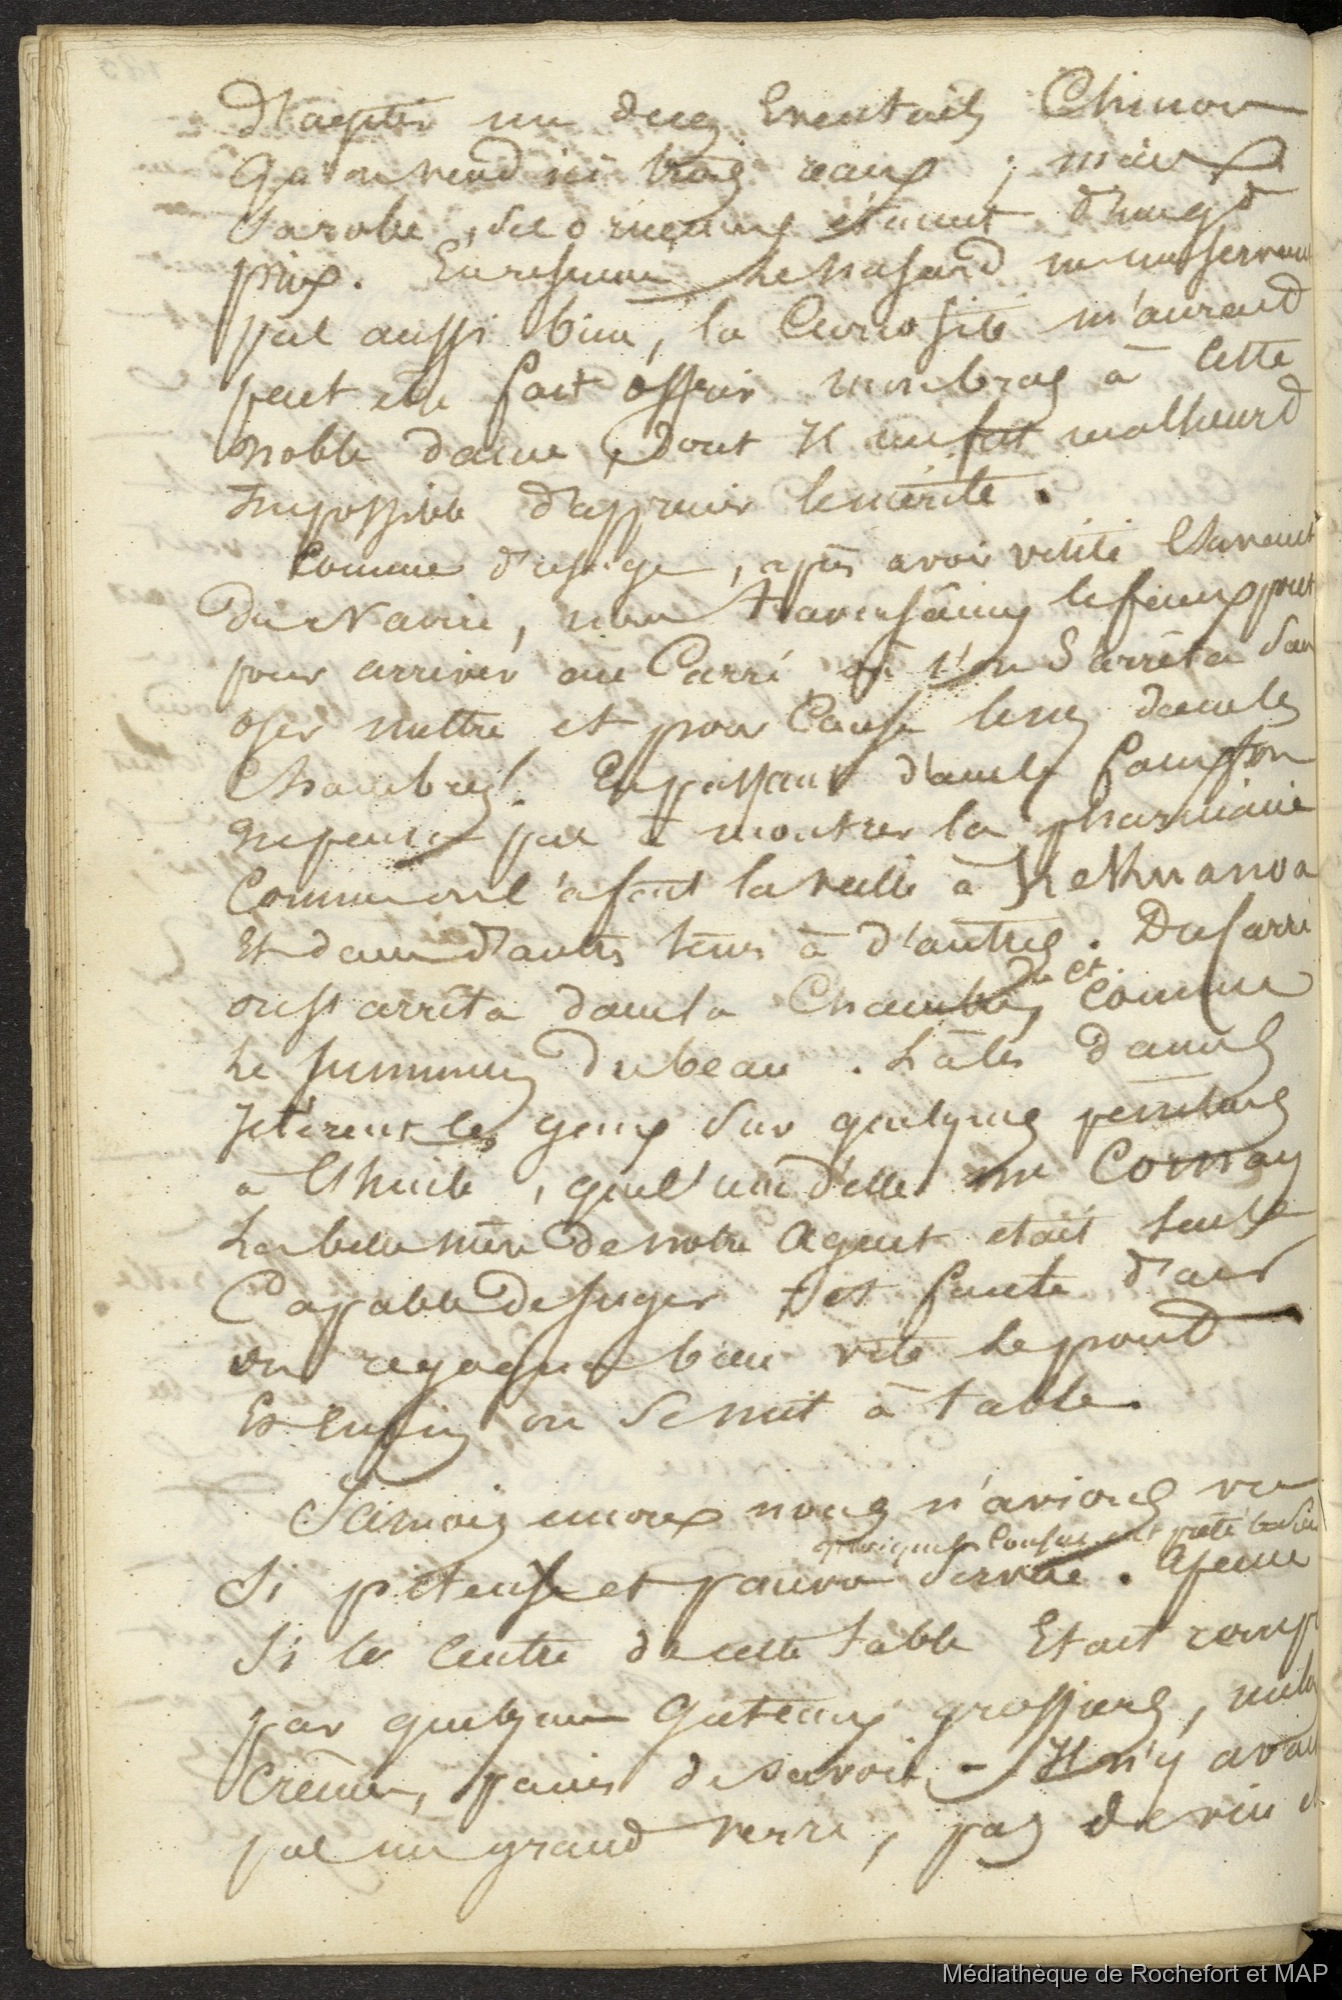 D'acheter un des Eventails Chinois
Qu'on vend ici trois reaux ; mais
Sa robe, ses ornemens étaient d'un gd
prix. En résumé le hasard ne me servant
pas aussi bien, la Curiosité m'aurait
peut être fait offrir mon bras à cette
noble dame, dont il me fut malheurt
Impossible d'apprecier le mérite.
Comme d'usage, après avoir visité l'avant
du Navire, nous traversâmes le faux pont
pour arriver au Carré où l'on s'arrêta Sans
oser mettre et pour Cause le nez dans les
Chambres. En passant dans le faux pon
ne pensa pas à montrer la pharmacie
Comme on l'a fait la veille à
Et dans d'autres tems à d'autres. Du Carré
on s'arrêta dans la Chambre du Ct. Comme
le summum du beau. Là les dames
Jetèrent les yeux sur quelques peintures
à l'huile, que l'une d'elles me Cornay
La belle mère de notre Agent etait seule
Capable de juger et faute d'air
on regagna bien vite le pont
Et Enfin on se mit à table.
Jamais encore nous n'avions vu
quoique
Si piteuse et pauvre Servie. A peine
Si le Centre de cette table Etait
par quelques Gateaux grossiers,
Crême, pains de savoie, - Il n'y avait
pas un grand verre, pas de vin
Médiathèque de Rochefort et MAP